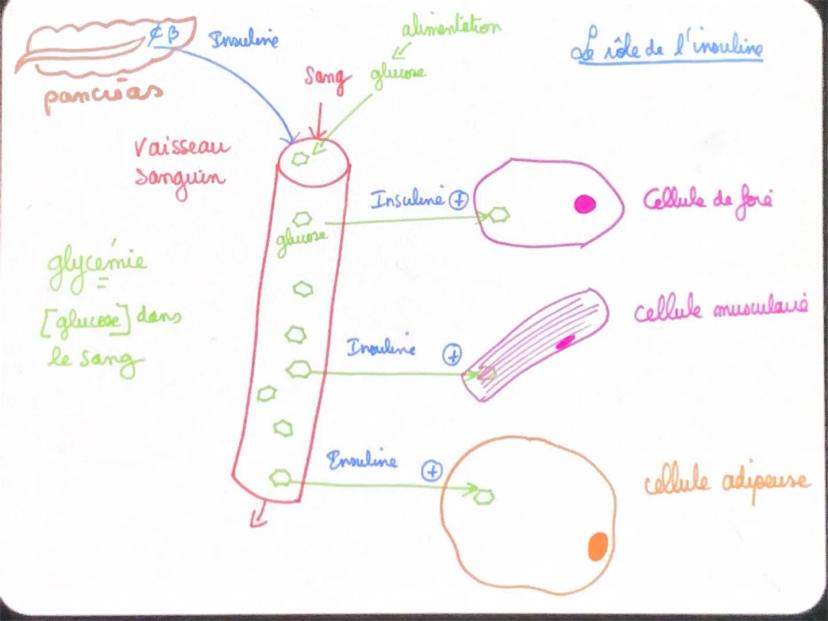 ¢ β
Insuline
pancréas
alimentation
glucose
Sang
Le rôle de l'insuline
Vaisseau
Sanguin
glucose
glycémie
=
[glucose] dans
le sang
Insuline +
Cellule de foie
Insuline +
cellule musculaire
Insuline +
cellule adipeuse